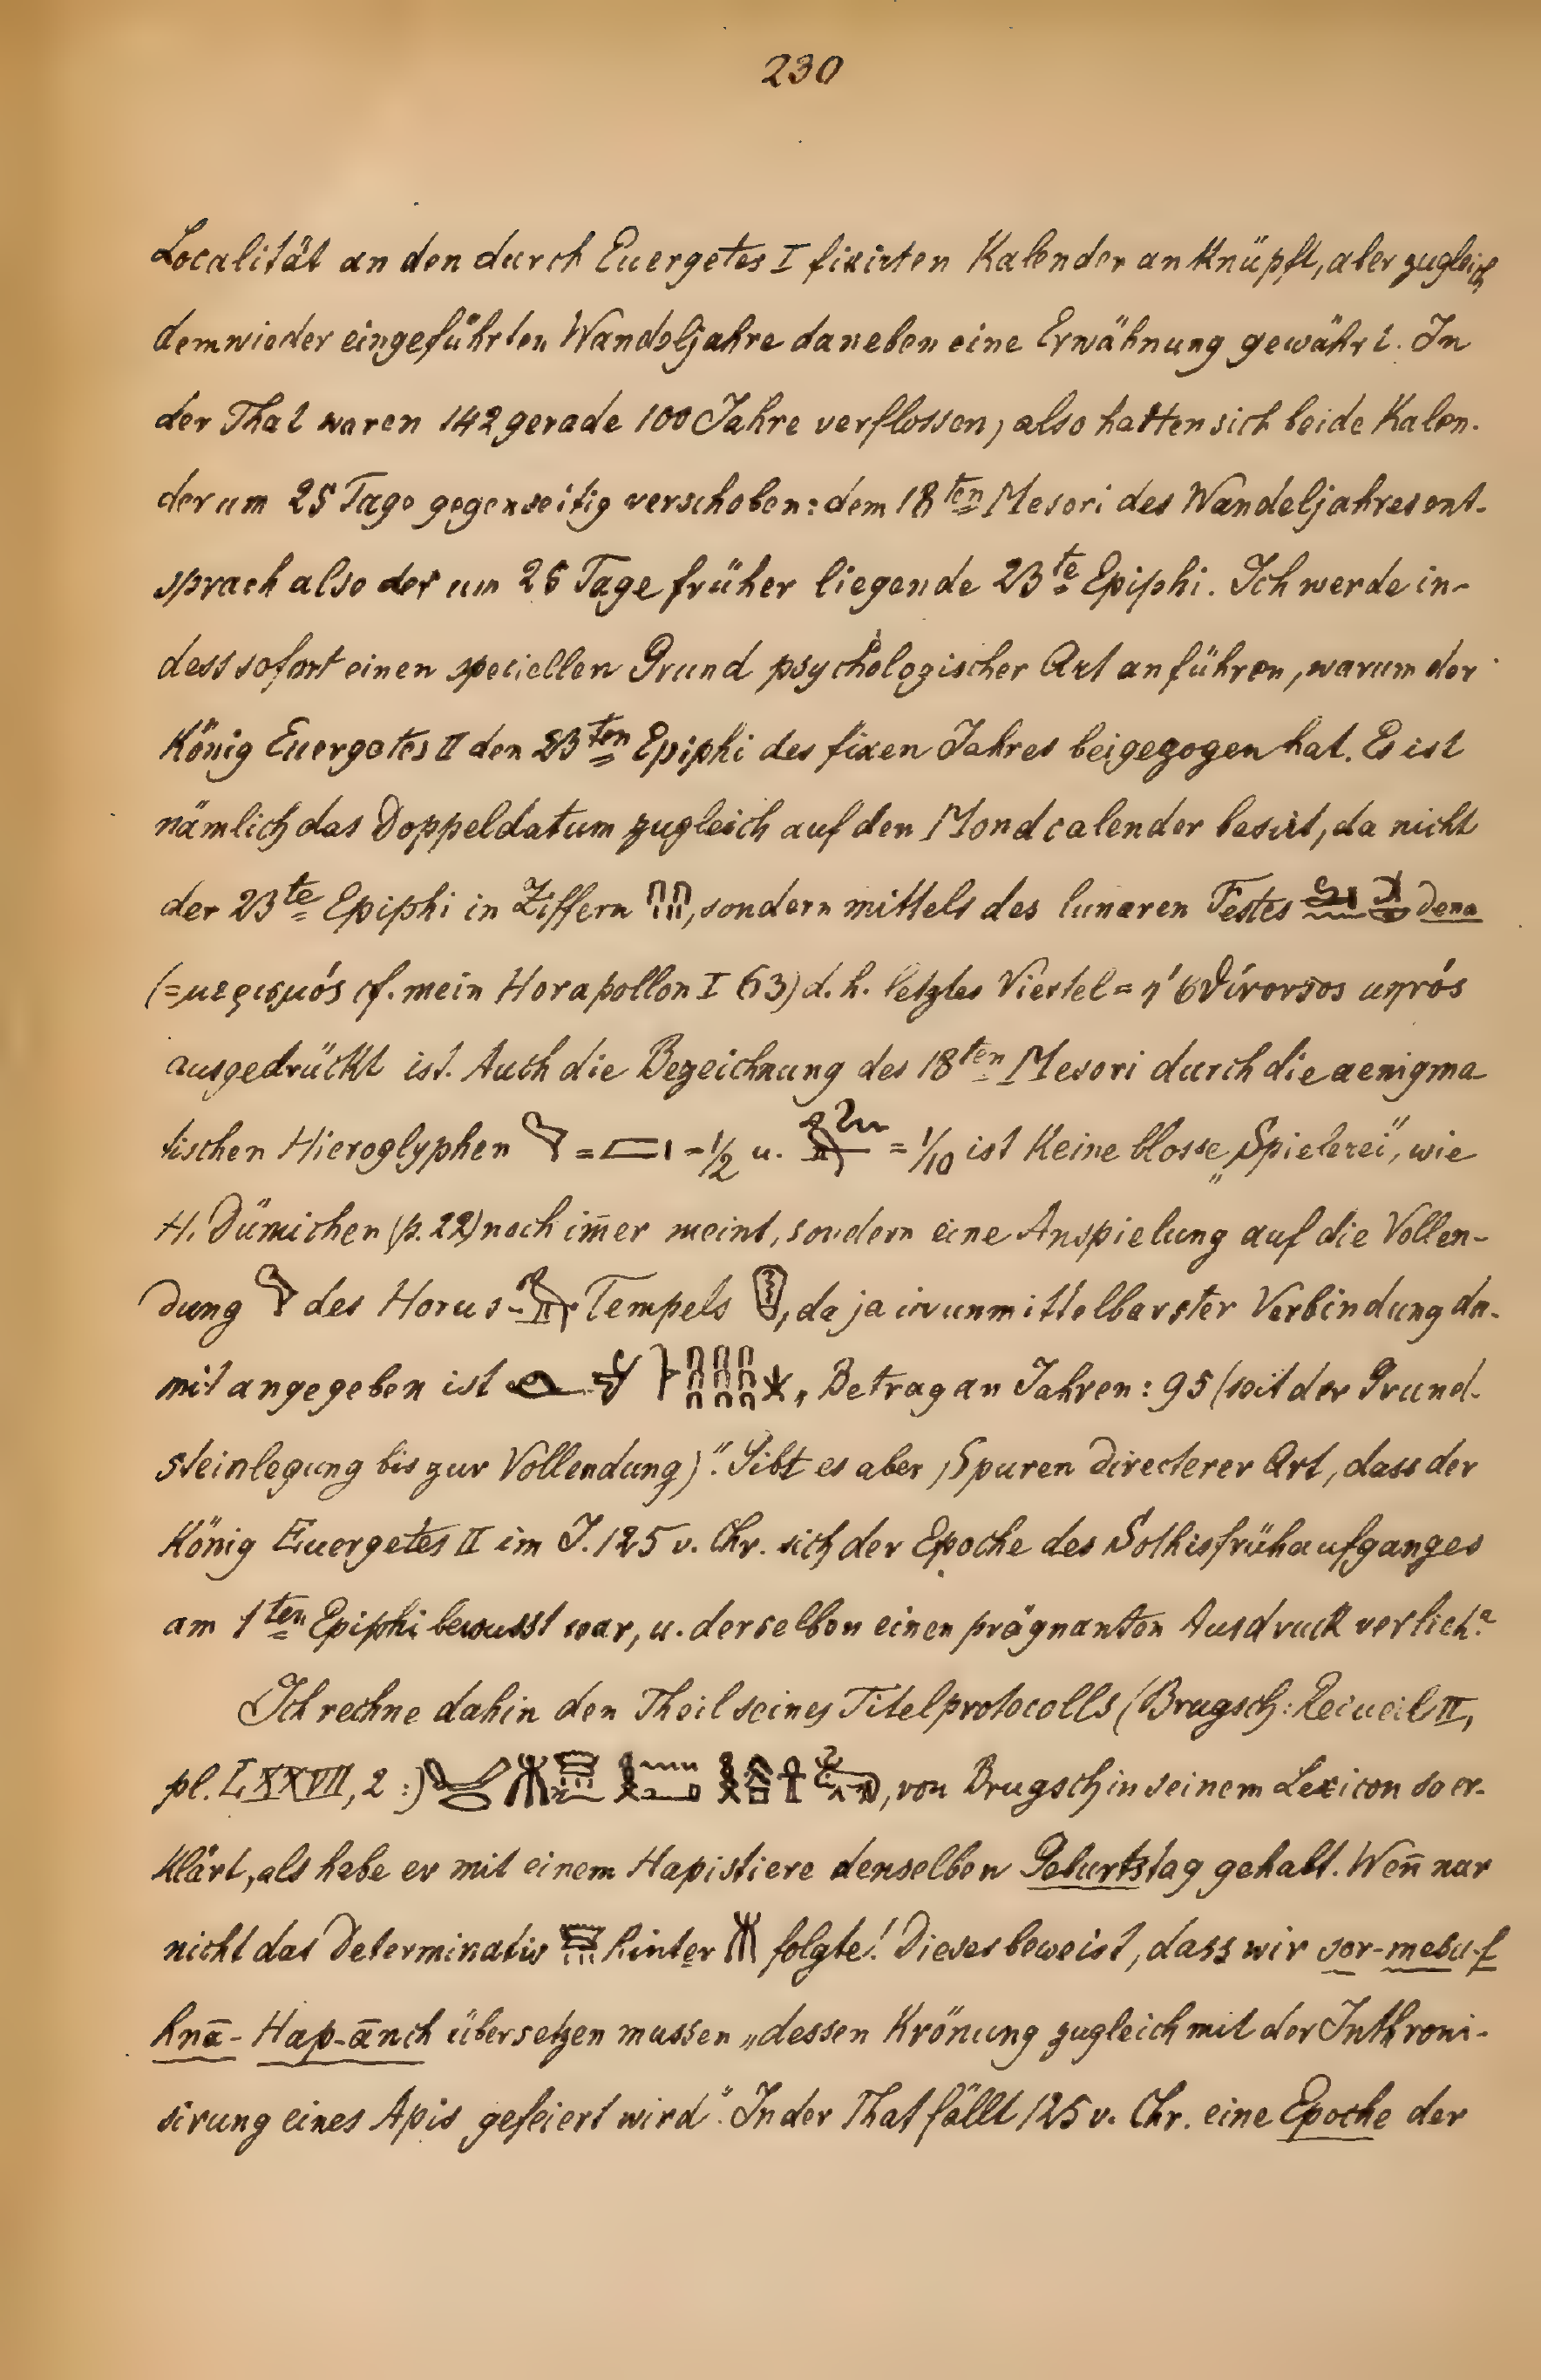 230
Localität an den durch Euergetes I fixirten Kalender anknüpft, aber zugleich
dem wieder eingeführten Wandeljahre daneben eine Erwähnung gewährt. In
der That waren 142 gerade 100 Jahre verflossen, also hatten sich beide Kalen-
der um 25 Tage gegenseitig verschoben: dem 18ten Mesori des Wandeljahres ent-
sprach also der um 25 Tage früher liegende 23te Epiphi. Ich werde in-
dess sofort einen speciellen Grund psychologischer Art anführen, warum der
König Euergetes II den 23ten Epiphi des fixen Jahres beigezogen hat. Es ist
nämlich das Doppeldatum zugleich auf den Mondcalender basirt, da nicht
der 23te Epiphi in Ziffern, sondern mittels des lunaren Festes dena
(=μερισμός cf. mein Horapollon I 63) d. h. letztes Viertel =
ausgedrückt ist. Auch die Bezeichnung des 18ten Mesori durch die aenigma-
tischen Hieroglyphen = = ½ u. = 1/10 ist keine blosse „Spielerei", wie
H. Dümichen (p. 22) noch im̄er meint, sondern eine Anspielung auf die Vollen-
dung des Horus- Tempels, da ja in unmittelbarster Verbindung da-
mit angegeben ist „Betrag an Jahren: 95 (seit der Grund-
steinlegung bis zur Vollendung)". Gibt es aber Spuren directerer Art, dass der
König Euergetes II im J. 125 v. Chr. sich der Epoche des Sothisfrühaufganges
am 1ten Epiphi bewusst war, u. derselben einen prägnanten Ausdruck verlieh?
Ich rechne dahin den Theil seines Titelprotocolls (Brugsch: Recueil II,
pl. LXXVII, 2 :) , von Brugsch in seinem Lexicon so er-
klärt, als habe er mit einem Hapistiere denselben Geburtstag gehabt. Wen̄ nur
nicht das Determinativ hinter folgte! Dieses beweist, dass wir sor-mesu-f
hnā-Hap-ānch übersetzen mussen „dessen Krönung zugleich mit der Inthroni-
sirung eines Apis gefeiert wird". In der That fällt 125 v. Chr. eine Epoche der